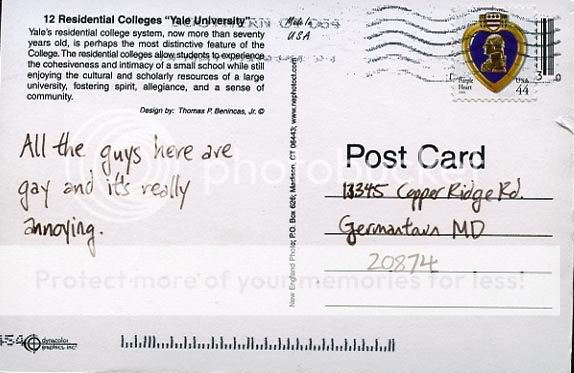 12 Residential Colleges "Yale University"
Yale's residential college system, now more than seventy
years old, is perhaps the most distinctive feature of the
College. The residential colleges allow students to experience
the cohesiveness and intimacy of a small school while still
enjoying the cultural and scholarly resources of a large
university, fostering spirit, allegiance, and a sense of
community.
Design by: Thomas P. Benincas, Jr. ©
Made In
USA
Purple
Heart
USA
44
All the guys here are
gay and it's really
annoying.
New England Photo; P.O. Box 628; Madison, CT 06443; www.nephotoct.com
Post Card
13345 Copper Ridge Rd.
Germantown MD
20874
photobucket
Protect more of your memories for less!
dynacolor
graphics, inc.